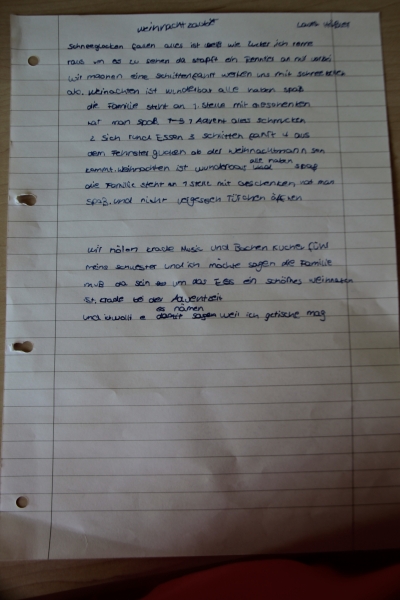 weihnachtzauber
Schneeglocken fallen alles ist weiß wie lecker ich renne
raus um es zu sehen da stapft ein Renntier an mir vorbei
wir machen eine Schlittenfahrt werfen uns mit Schneebällen
ab. Weihnachten ist wunderbar alle haben spaß
die Familie steht an 1. Stelle mit Geschenken
hat man spaß 1 Advent alles schmücken
2 sich rund Essen 3 schlitten fahrt 4 aus
dem Fehnster gucken ob der weihnachtmann
kommt. weihnachten ist wunderbar alle haben spaß
die Familie steht an 1 Stelle mit Geschenken hat man
spaß. und nicht vergessen Türchen öffnen
wir hören Music und Bachen Kuchen
meine schwester und ich möchte sagen die Familie
muß da sein um das Es ein schöhnes weihnachten
ist. bei der Adventzeit
es
und damit sagen weil ich mag